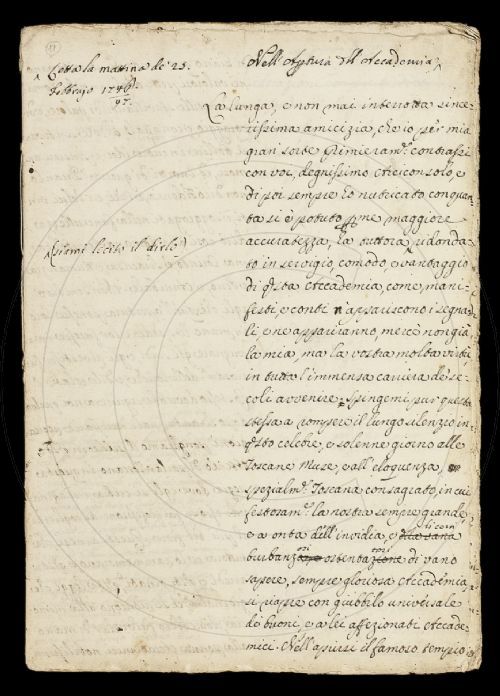 11
Letta la mattina de' 25.
Febbrajo 1746/
47.
Nell'Aptura dell'Accademia
La lunga, e non mai interrotta since
rissima amicizia, ch'io per mia
gran sorte primieram.te contrassi
con voi, degnissimo Arciconsolo, e
di poi sempre ho nutricato con quan
ta si è potuto p me maggiore
accuratezza, ha tuttora ridonda
to in servigio, comodo, e vantaggio
(siami lecito il dirlo)
di q.sta Accademia, come, mani-
festi, e conti n'appariscono i segna
li, e ne appariranno, mercè non già
la mia, ma la vostra molta virtù
in tutta l'immensa carriera de' se-
coli avvenire. Spingemi pur questa
stessa a rompere il lungo silenzio in
q.sto celebre, e solenne giorno alle
Toscane Muse, e all'eloquenza,
spezialm.te Toscana consagrato, in cui
festosam.te la nostra sempre grande
e a onta dell'invidia, e
burbanz ostentazioni di vano
sapere, sempre gloriosa Accademia
si riapre con giubbilo universale
de' buoni, e a lei affezionati Accade-
mici. Nell'aprirsi il famoso tempio